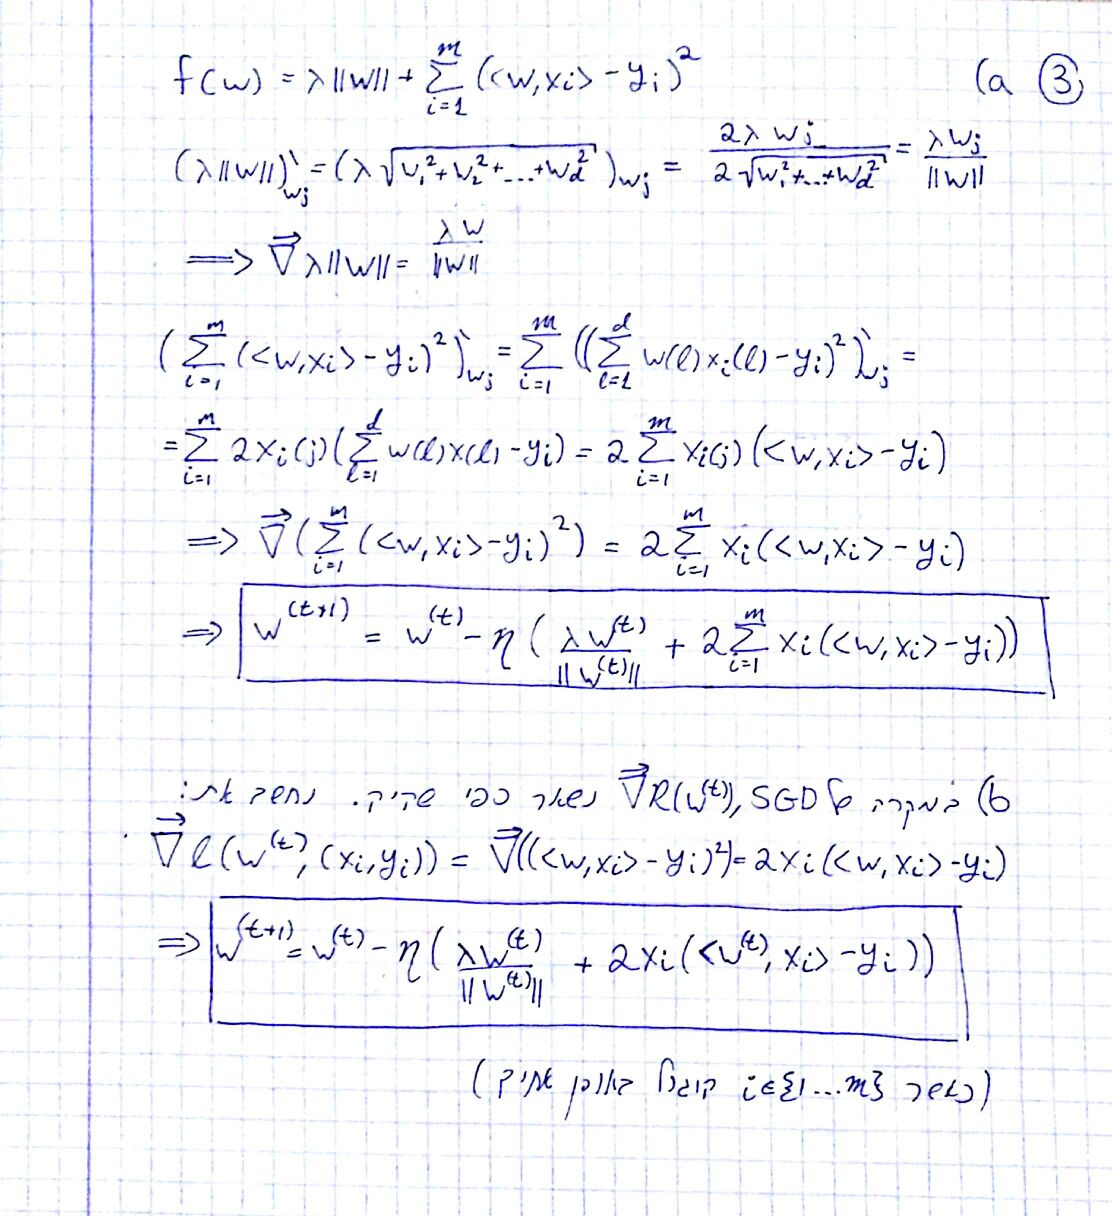 3) a)
f(w) = λ||w|| + Σ_{i=1}^{m} (<w,xi> - yi)^2
(λ||w||)'_{wj} = (λ√(w_1^2+w_2^2+...+w_d^2))_{wj} = 2λwj / 2√(w_1^2+...+w_d^2) = λwj / ||w||
⟹ ∇⃗ λ||w|| = λw / ||w||
(Σ_{i=1}^{m} (<w,xi> - yi)^2)'_{wj} = Σ_{i=1}^{m} ((Σ_{l=1}^{d} w(l)xi(l) - yi)^2)'_{wj} =
= Σ_{i=1}^{m} 2xi(j)(Σ_{l=1}^{d} w(l)x(l) - yi) = 2 Σ_{i=1}^{m} xi(j)(<w,xi> - yi)
⟹ ∇⃗(Σ_{i=1}^{m} (<w,xi> - yi)^2) = 2 Σ_{i=1}^{m} xi(<w,xi> - yi)
⟹ w^{(t+1)} = w^{(t)} - η(λw^{(t)} / ||w^{(t)}|| + 2 Σ_{i=1}^{m} xi(<w,xi> - yi))
b) במקרה של SGD, ∇⃗R(w^{(t)}) נשאר כפי שהיה. נחשב את:
∇⃗l(w^{(t)}, (xi,yi)) = ∇⃗((<w,xi> - yi)^2) = 2xi(<w,xi> - yi)
⟹ w^{(t+1)} = w^{(t)} - η(λw^{(t)} / ||w^{(t)}|| + 2xi(<w^{(t)}, xi> - yi))
(כאשר i∈{1...m} הוגרל באופן אחיד)